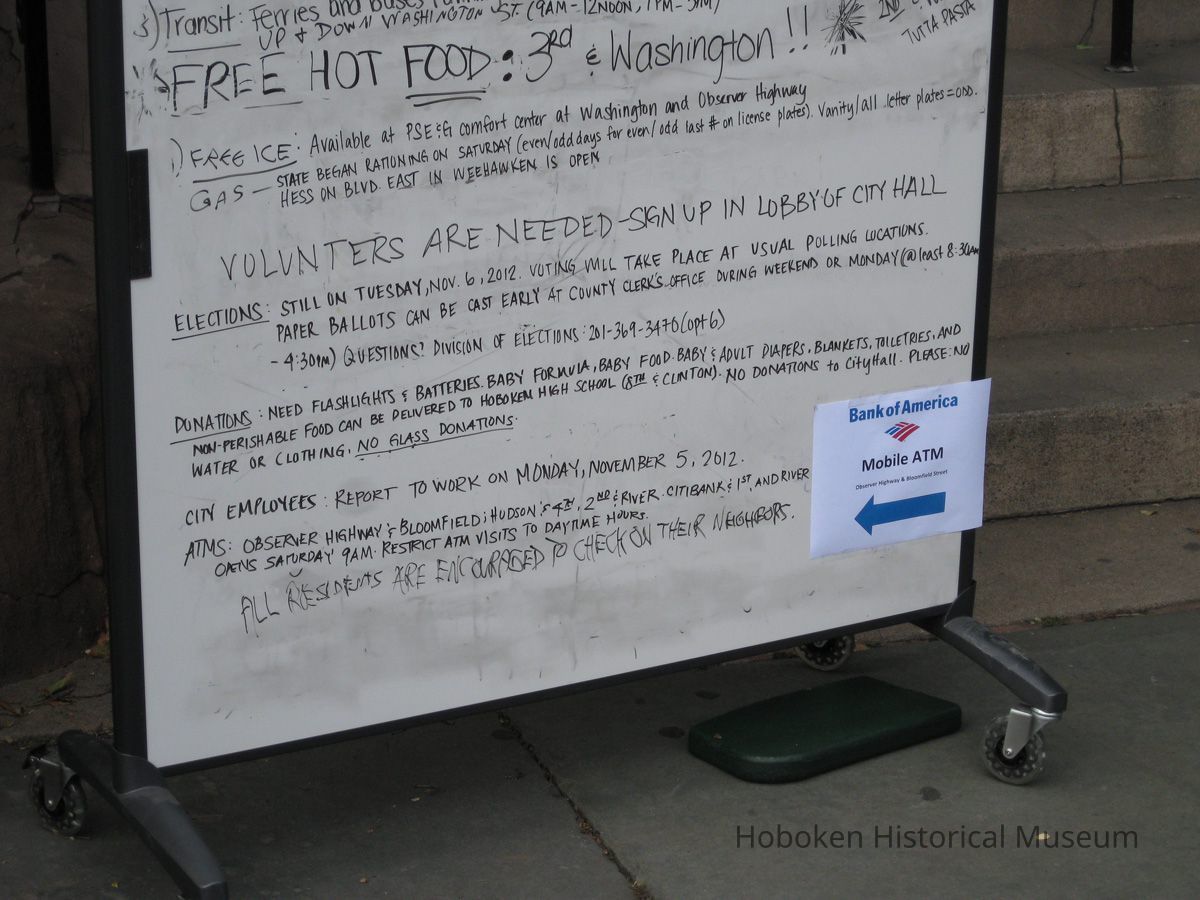 3) Transit: Ferries and buses
UP & DOWN WASHINGTON ST. (9AM-12NOON, 1PM-5PM)
2ND &
TUTTA PASTA
FREE HOT FOOD: 3rd & Washington!!
) FREE ICE: Available at PSE&G comfort center at Washington and Observer Highway
GAS — STATE BEGAN RATIONING ON SATURDAY (even/odd days for even/odd last # on license plates). Vanity/all letter plates = ODD.
HESS ON BLVD. EAST IN WEEHAWKEN IS OPEN
VOLUNTERS ARE NEEDED - SIGN UP IN LOBBY OF CITY HALL
ELECTIONS: STILL ON TUESDAY, NOV. 6, 2012. VOTING WILL TAKE PLACE AT USUAL POLLING LOCATIONS.
PAPER BALLOTS CAN BE CAST EARLY AT COUNTY CLERK'S OFFICE DURING WEEKEND OR MONDAY (@ least 8:30am
- 4:30pm) QUESTIONS? DIVISION OF ELECTIONS: 201-369-3470 (opt 6)
DONATIONS: NEED FLASHLIGHTS & BATTERIES. BABY FORMULA, BABY FOOD. BABY & ADULT DIAPERS, BLANKETS, TOILETRIES, AND
NON-PERISHABLE FOOD CAN BE DELIVERED TO HOBOKEN HIGH SCHOOL (8TH & CLINTON). NO DONATIONS to City Hall. PLEASE: NO
WATER OR CLOTHING, NO GLASS DONATIONS.
CITY EMPLOYEES: REPORT TO WORK ON MONDAY, NOVEMBER 5, 2012.
ATMS: OBSERVER HIGHWAY & BLOOMFIELD; HUDSON & 4TH, 2ND & RIVER. CITIBANK & 1ST, AND RIVER
OPENS SATURDAY 9AM. RESTRICT ATM VISITS TO DAYTIME HOURS.
ALL RESIDENTS ARE ENCOURAGED TO CHECK ON THEIR NEIGHBORS.
Bank of America
Mobile ATM
Observer Highway & Bloomfield Street
Hoboken Historical Museum